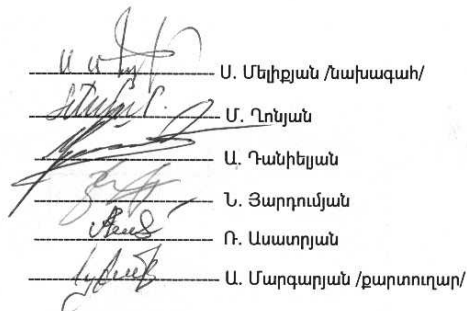 Ս. Մելիքյան /նախագահ/
Մ. Ղոնյան
Ա. Դանիելյան
Ն. Յարդումյան
Ռ. Ասատրյան
Ա. Մարգարյան /քարտուղար/